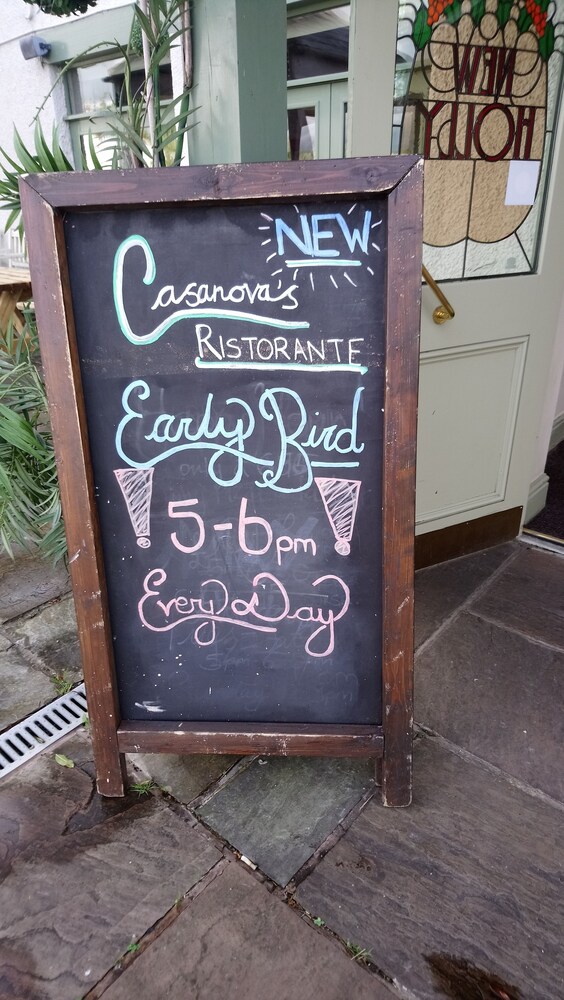 NEW
Casanova's
RISTORANTE
Early Bird
! 5-6pm !
Every Day
NEW
HOLLY